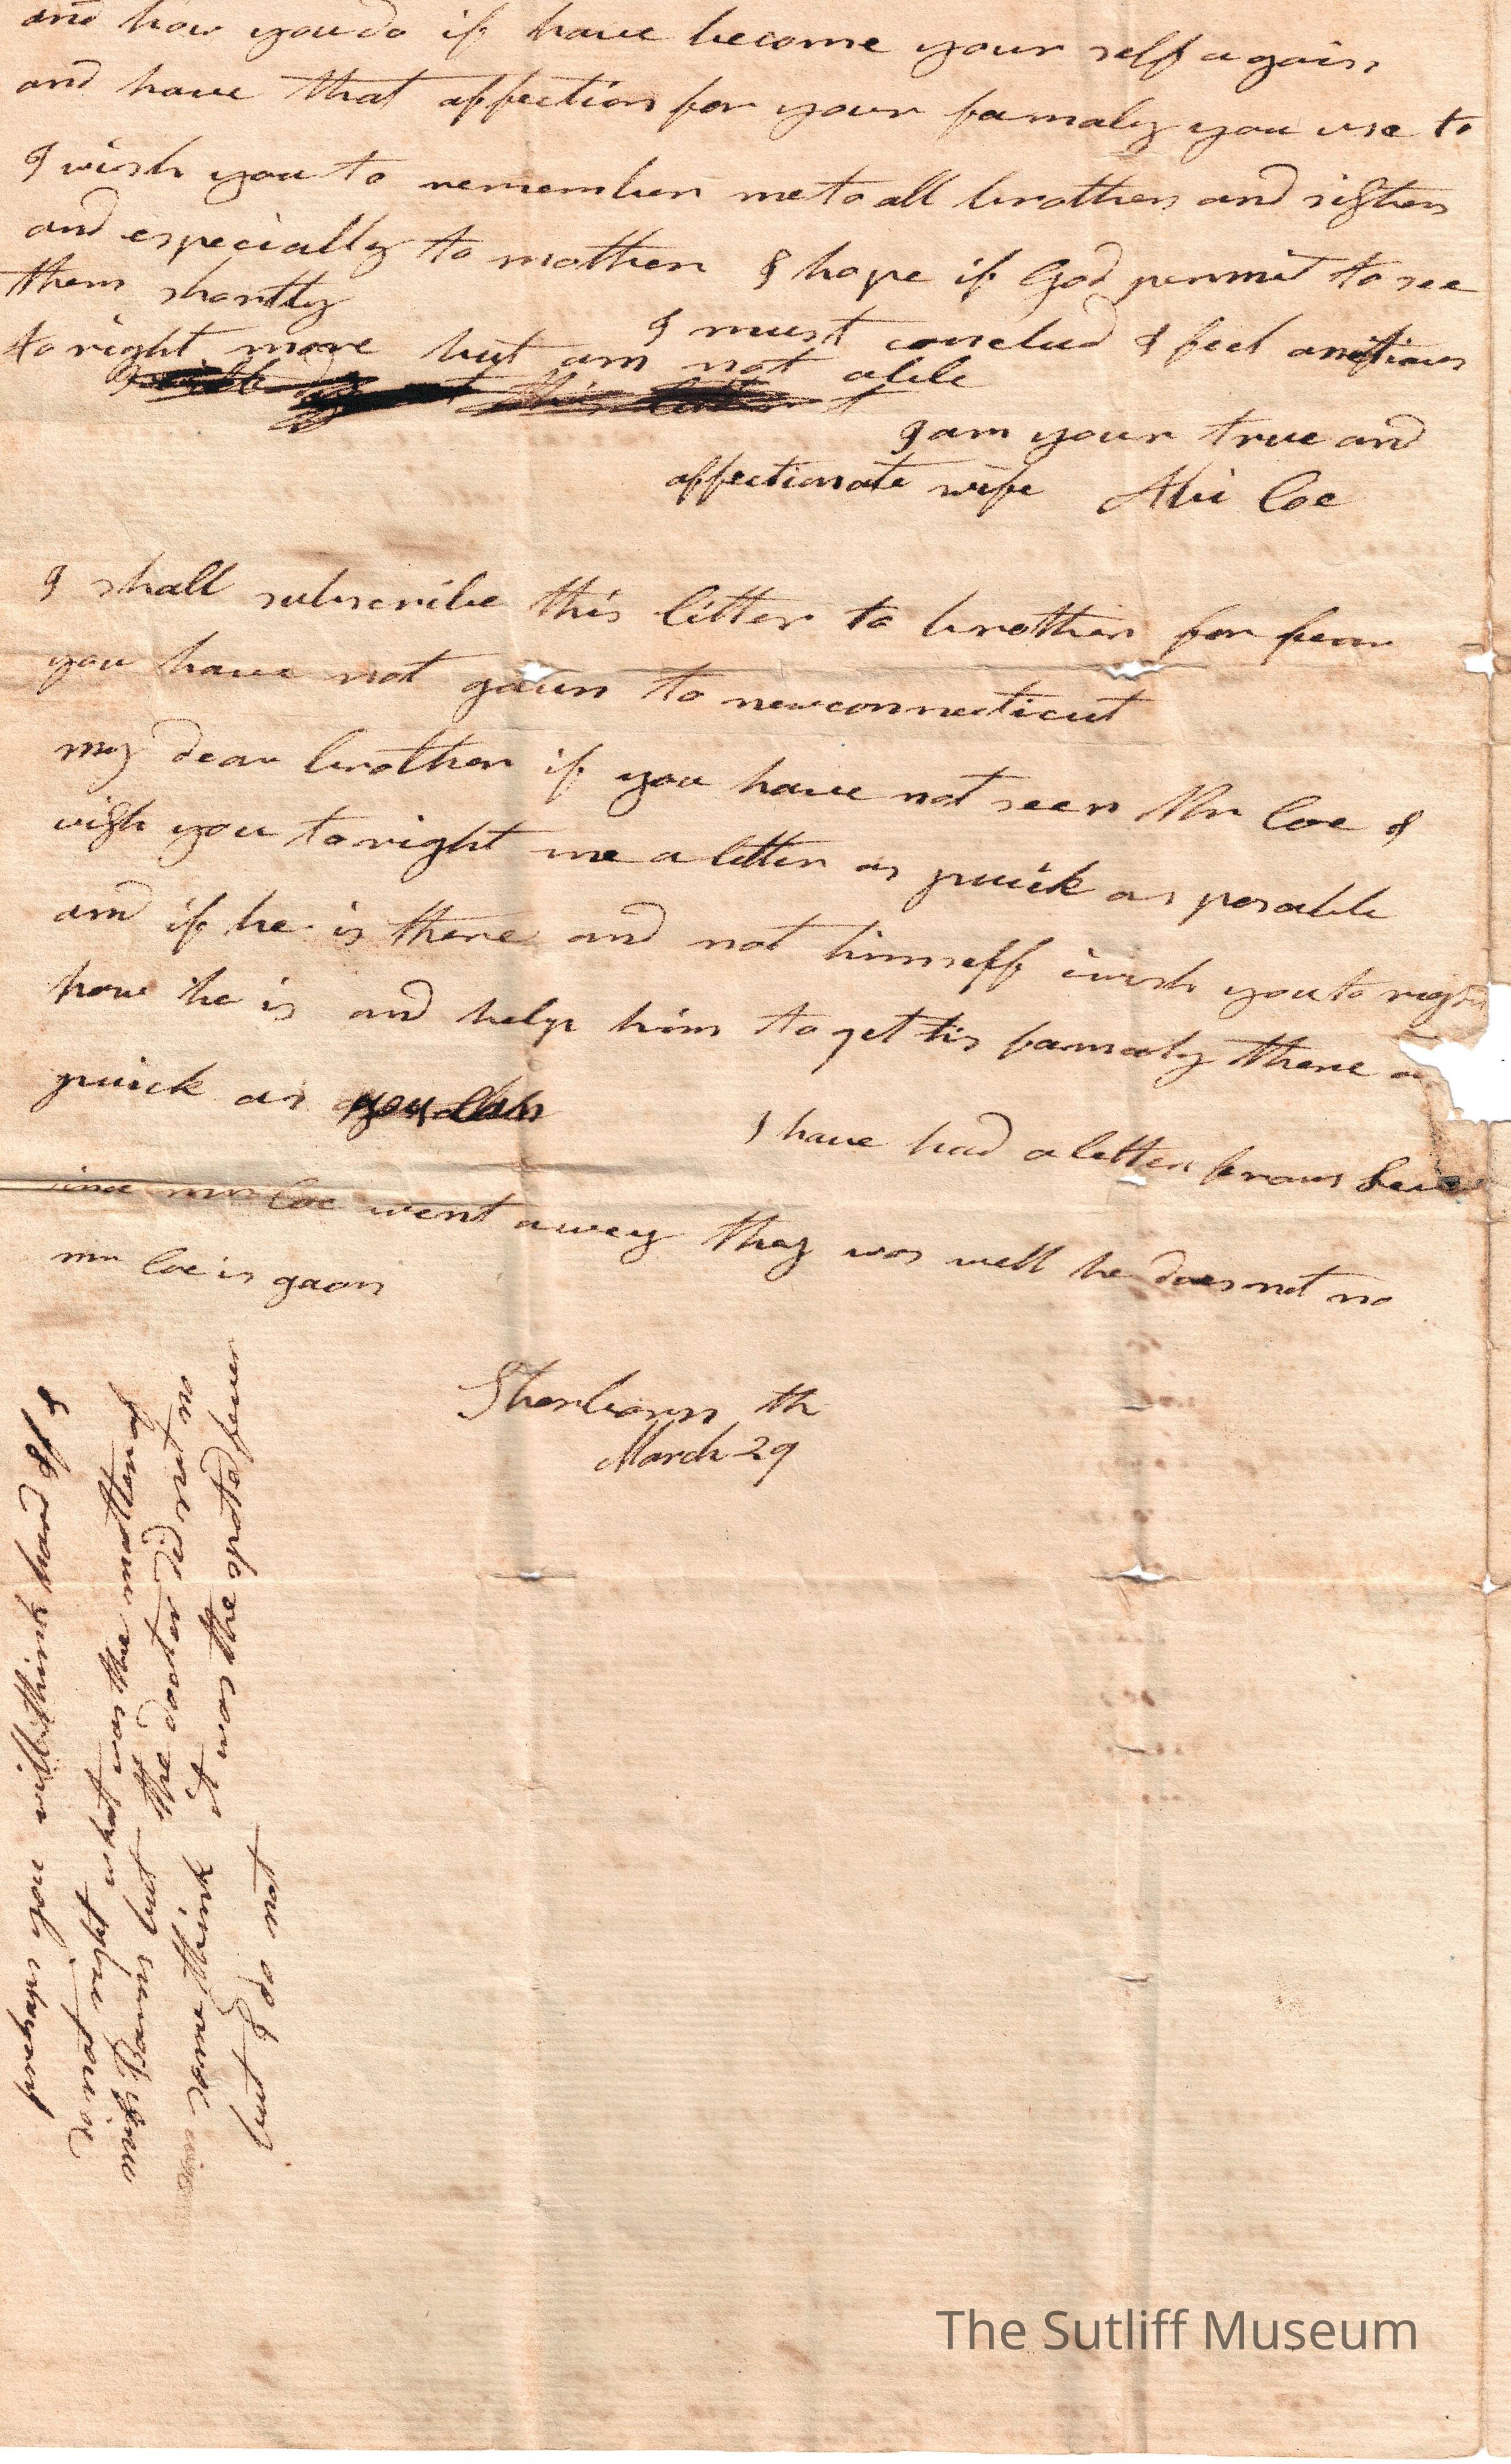 and how you do if have become your self again
and have that affection for your famaly you use to
I wish you to remember me to all brothers and sisters
and especially to mother I hope if God permit to see
them shortly
I must conclud I feel anxtious
to right more but am not able
I am your true and
affectionate wife Abi Coe
I shall subscribe this letter to brother for fear
you have not gaun to newconnecticut
my dear brother if you have not seen Mr Coe I
wish you to right me a letter as quick as posable
and if he is there and not himself i wish you to right
how he is and help him to get his famaly there as
quick as you can
I have had a letter from
since mr Coe went awey thay was well he does not no
mr Coe is gaon
Sherburn th
March 29
perhaps you will think hard if I
dont right what was the matter of
my but the docter did not no
it was the spoted fever
but I do not
The Sutliff Museum